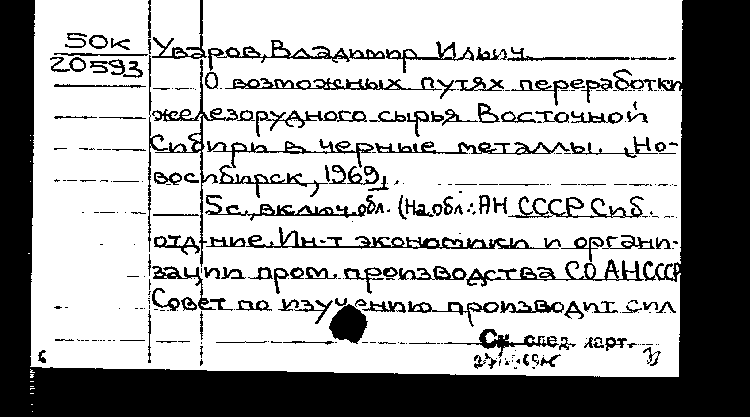 50к
20593
Уваров, Владимир Ильич.
О возможных путях переработки
железорудного сырья Восточной
Сибири в черные металлы. [Но-
восибирск, 1969].
5с., включ. обл. (На обл.: АН СССР Сиб.
отд-ние. Ин-т экономики и органи-
зации пром. производства СО АН СССР
Совет по изучению производит. сил
См. след. карт.
6